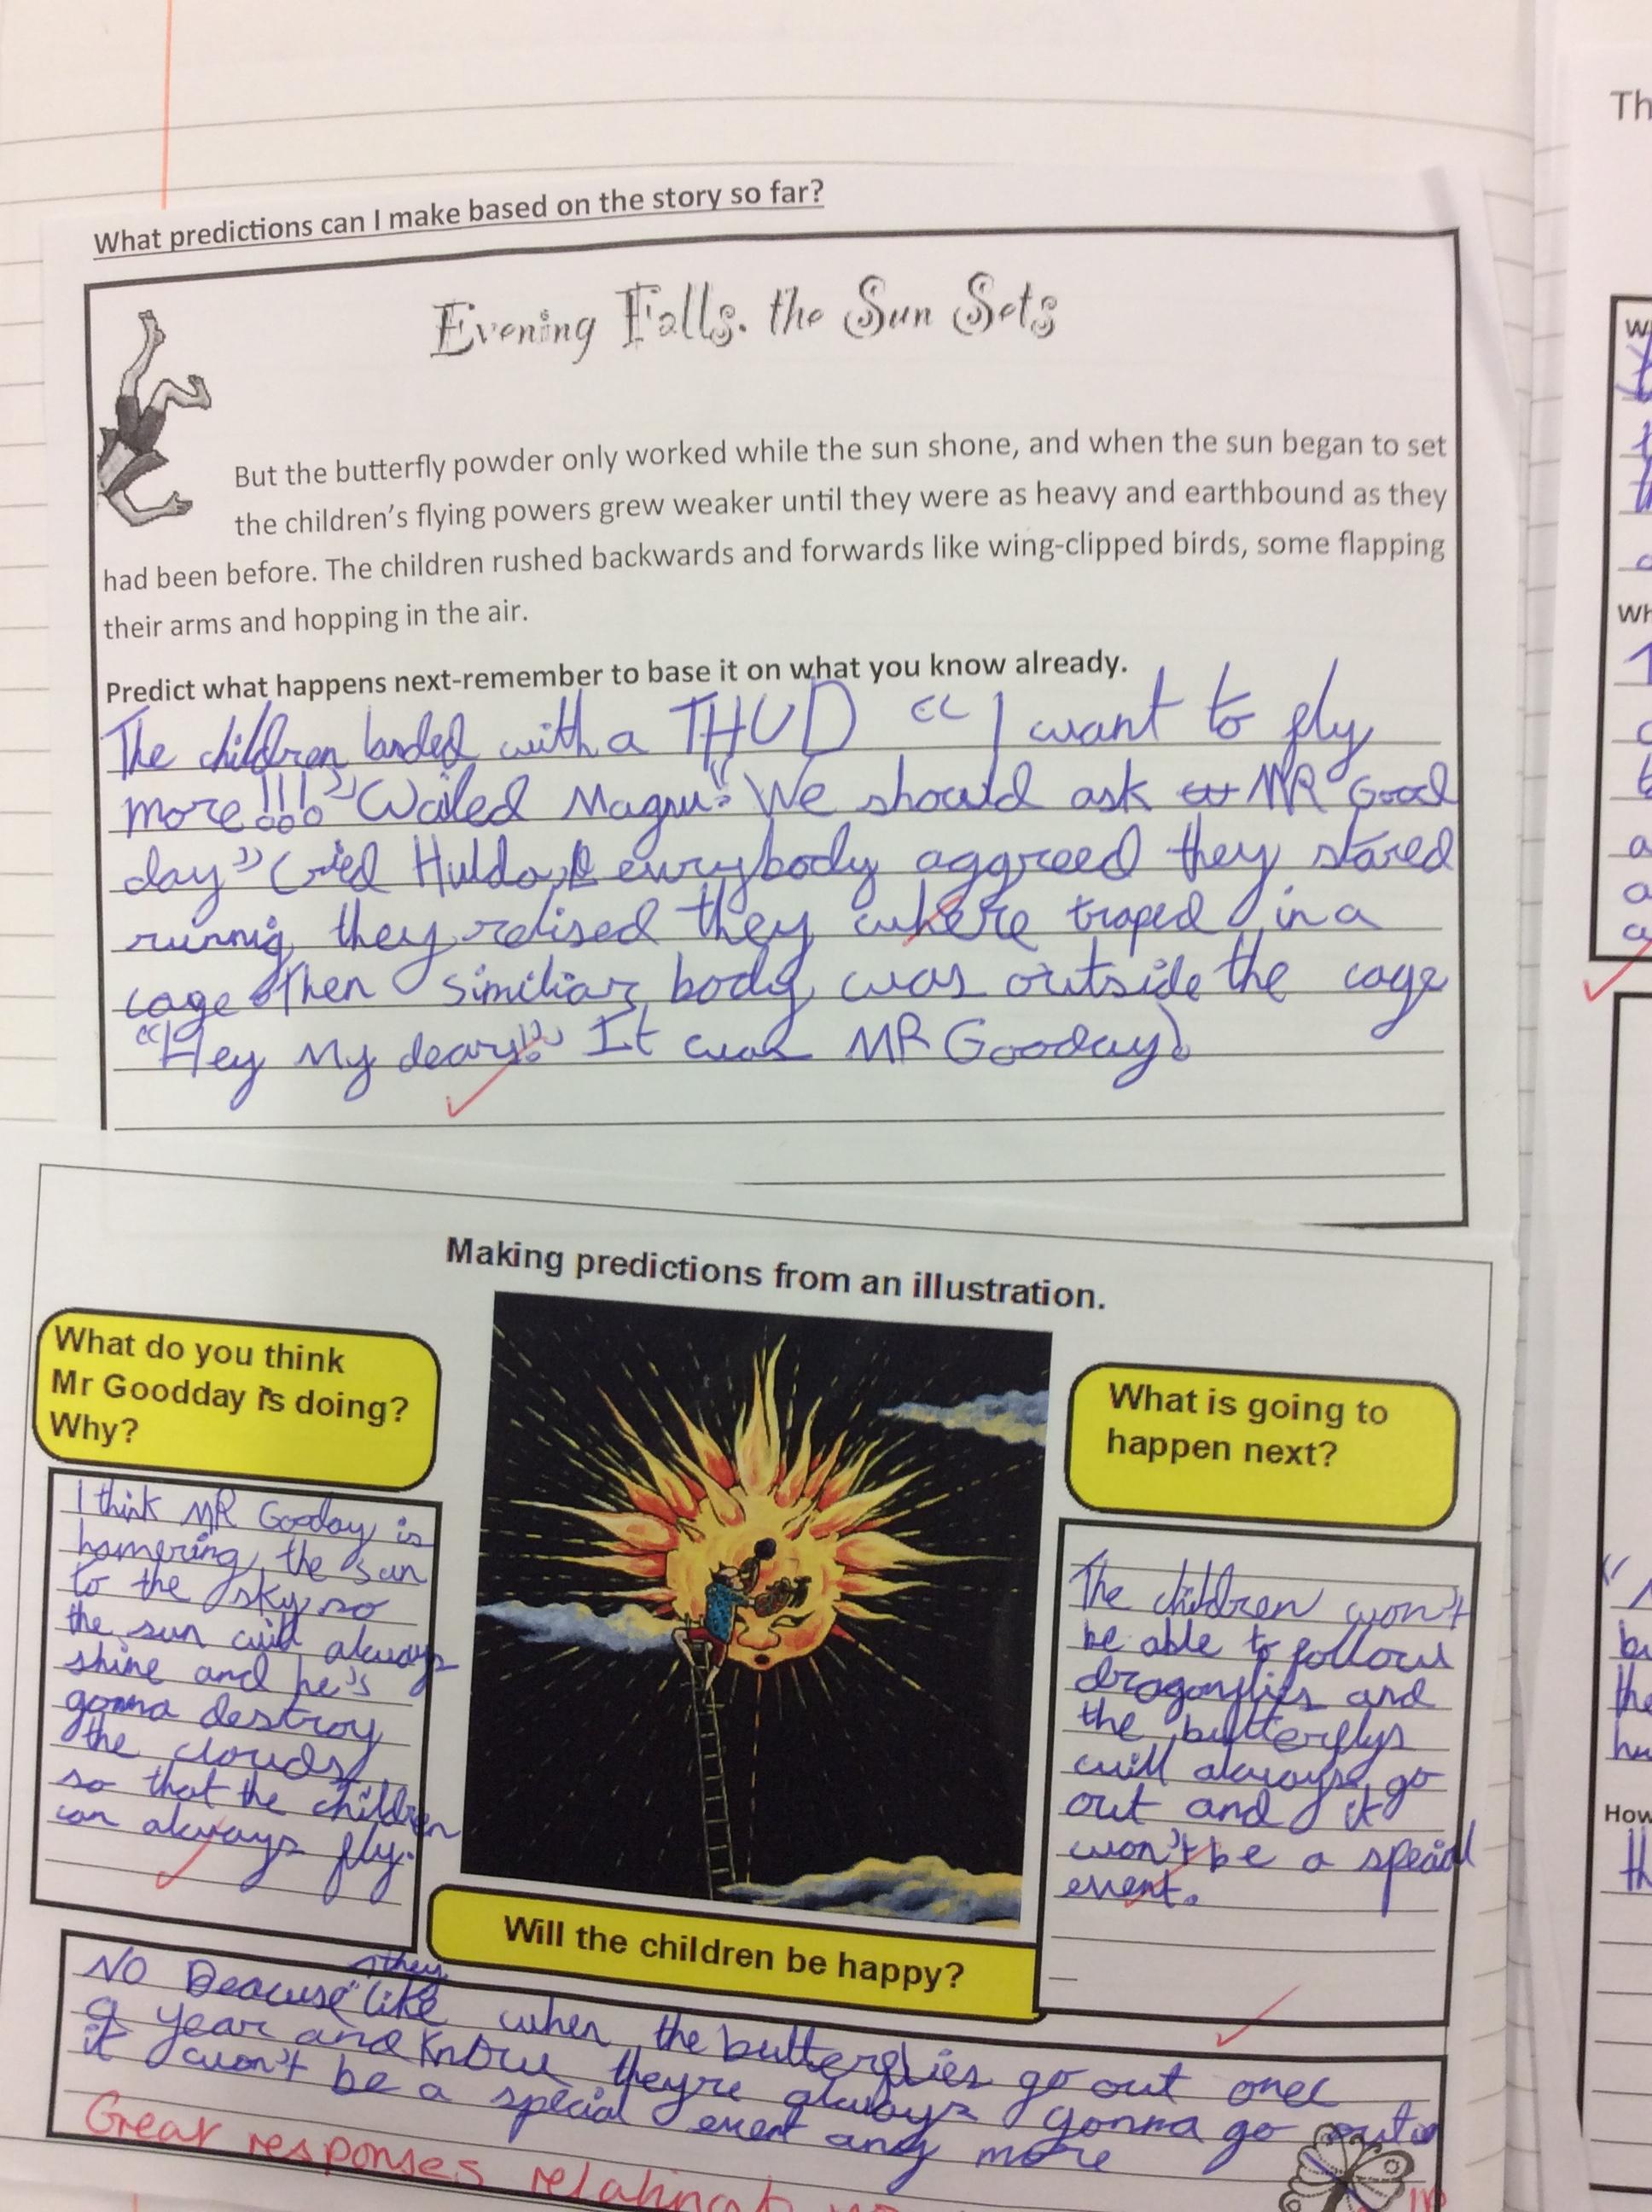 What predictions can I make based on the story so far?
Evening Falls, the Sun Sets
But the butterfly powder only worked while the sun shone, and when the sun began to set
the children's flying powers grew weaker until they were as heavy and earthbound as they
had been before. The children rushed backwards and forwards like wing-clipped birds, some flapping
their arms and hopping in the air.
Predict what happens next-remember to base it on what you know already.
The children landed with a THUD " I want to fly
more!!!" Wailed Magnu. "We should ask MR Good
day" Cried Hulda, everybody aggreed they stared
runnig, they relised they where traped in a
cage Then similiar body was outside the cage
"Hey My dears!" It was MR Gooday.
Making predictions from an illustration.
What do you think
Mr Goodday is doing?
Why?
I think MR Gooday is
hamering the sun
to the sky so
the sun will always
shine and he's
gonna destroy
the clouds
so that the children
can always fly.
What is going to
happen next?
The children won't
be able to follow
dragonflies and
the butterflys
will always go
out and it
won't be a special
event.
Will the children be happy?
NO Beacuse they like when the butterflies go out once
a year and know theyre always gonna go out
it won't be a special event any more
Great responses relating
Th
W
Wh
How